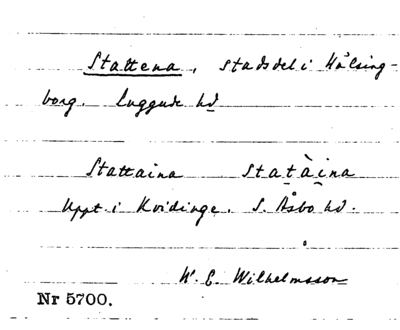 Stattena, stadsdel i Hälsing-
borg. Luggude hd
Stattaina staṭàịna
Uppt. i Kvidinge. S. Åsbo hd.
W. E. Wilhelmsson
Nr 5700.